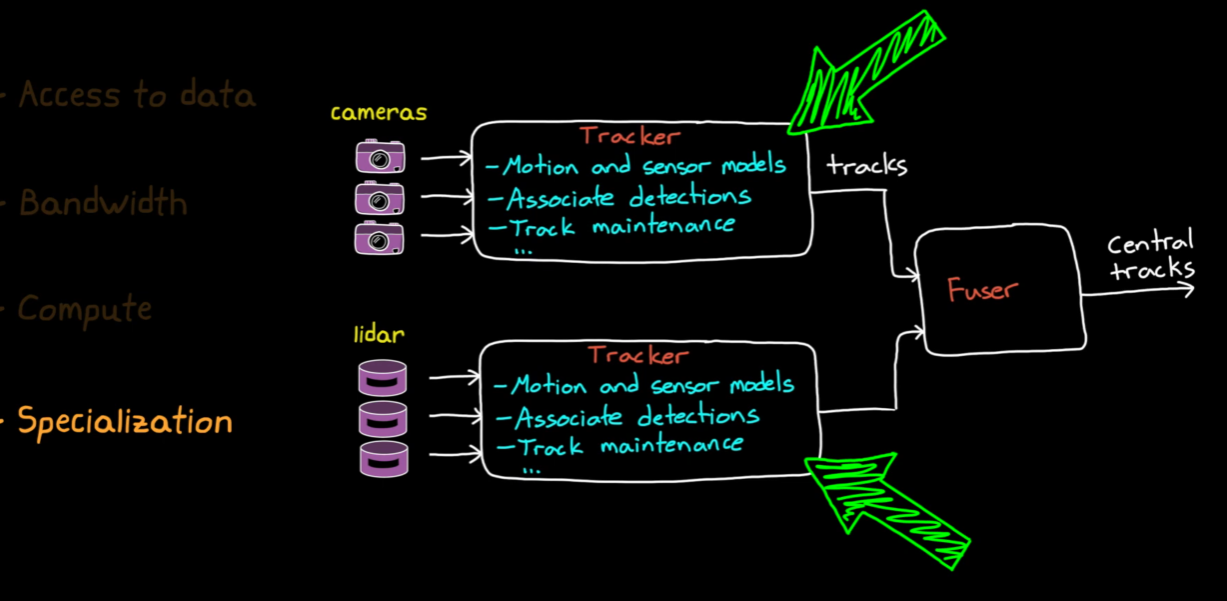 - Access to data
- Bandwidth
- Compute
- Specialization
cameras
Tracker
- Motion and sensor models
- Associate detections
- Track maintenance
...
tracks
lidar
Tracker
- Motion and sensor models
- Associate detections
- Track maintenance
...
Fuser
central
tracks